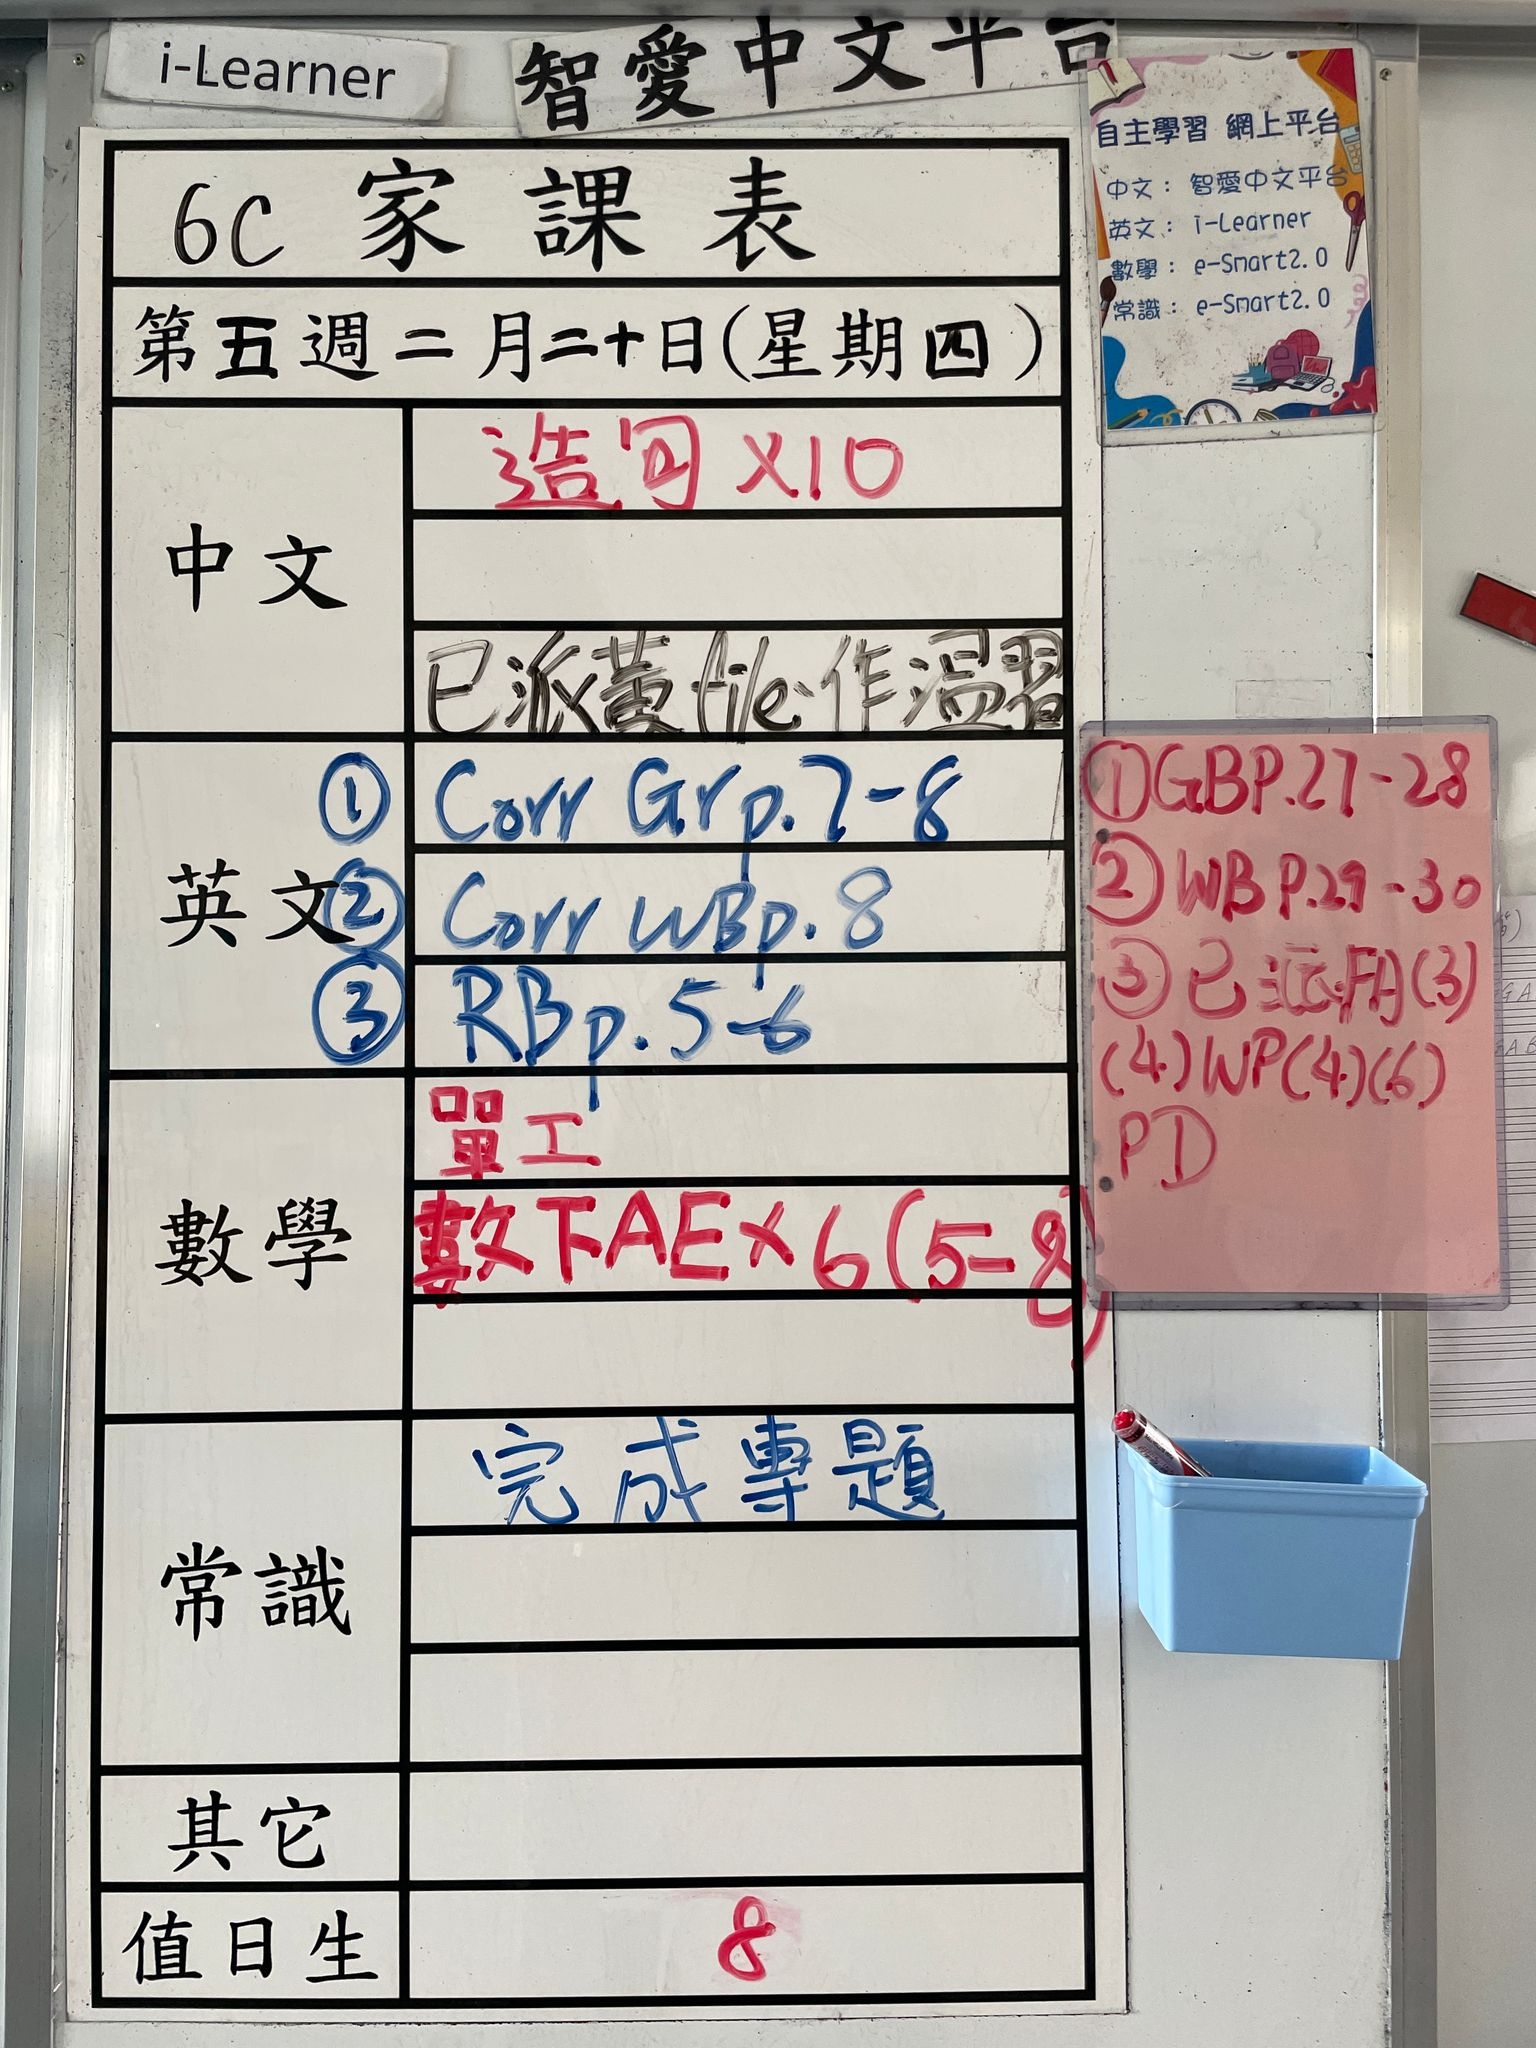 i-Learner
智愛中文平台
自主學習 網上平台
中文： 智愛中文平台
英文： i-Learner
數學： e-Smart2.0
常識： e-Smart2.0
6C 家課表
第五週二月二十日(星期四)
中文
造句 X10
已派黃file作溫習
英文
① Corr Gr p.7-8
② Corr WB p.8
③ RB p.5-6
數學
單工
數下AE X 6 (5-8)
常識
完成專題
其它
值日生
8
① GB P.27-28
② WB P.29-30
③ 已派FA(3)
(4) WP(4)(6)
PD